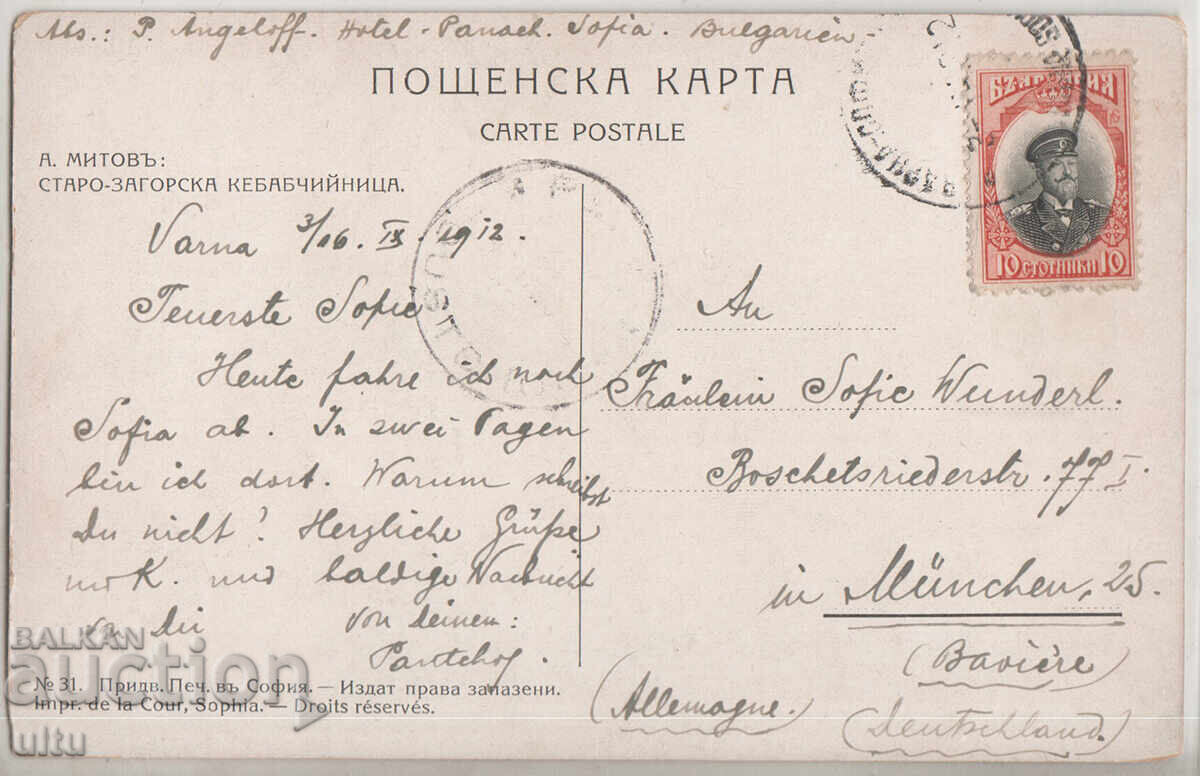 Abs.: P. Angeloff. Hotel-Panach. Sofia. Bulgarien
ПОЩЕНСКА КАРТА
CARTE POSTALE
А. МИТОВЪ:
СТАРО-ЗАГОРСКА КЕБАБЧИЙНИЦА.
БЪЛГАРИЯ
10 СТОТИНКИ 10
Varna 3/16. IX. 1912.
Teuerste Sofie
Heute fahre ich nach
Sofia ab. In zwei Tagen
bin ich dort. Warum schreibst
Du nicht! Herzliche Grüße
und K. und baldige Nachricht
von Dir von Deinem:
An
Fräulein Sofie Wunderl.
Boschetsriederstr. 77 I.
in München, 25.
(Bavière)
(Allemagne.)
(Deutschland.)
№ 31. Придв. Печ. въ София. — Издат права запазени.
Impr. de la Cour, Sophia. — Droits réservés.
BALKAN
auction
ultu